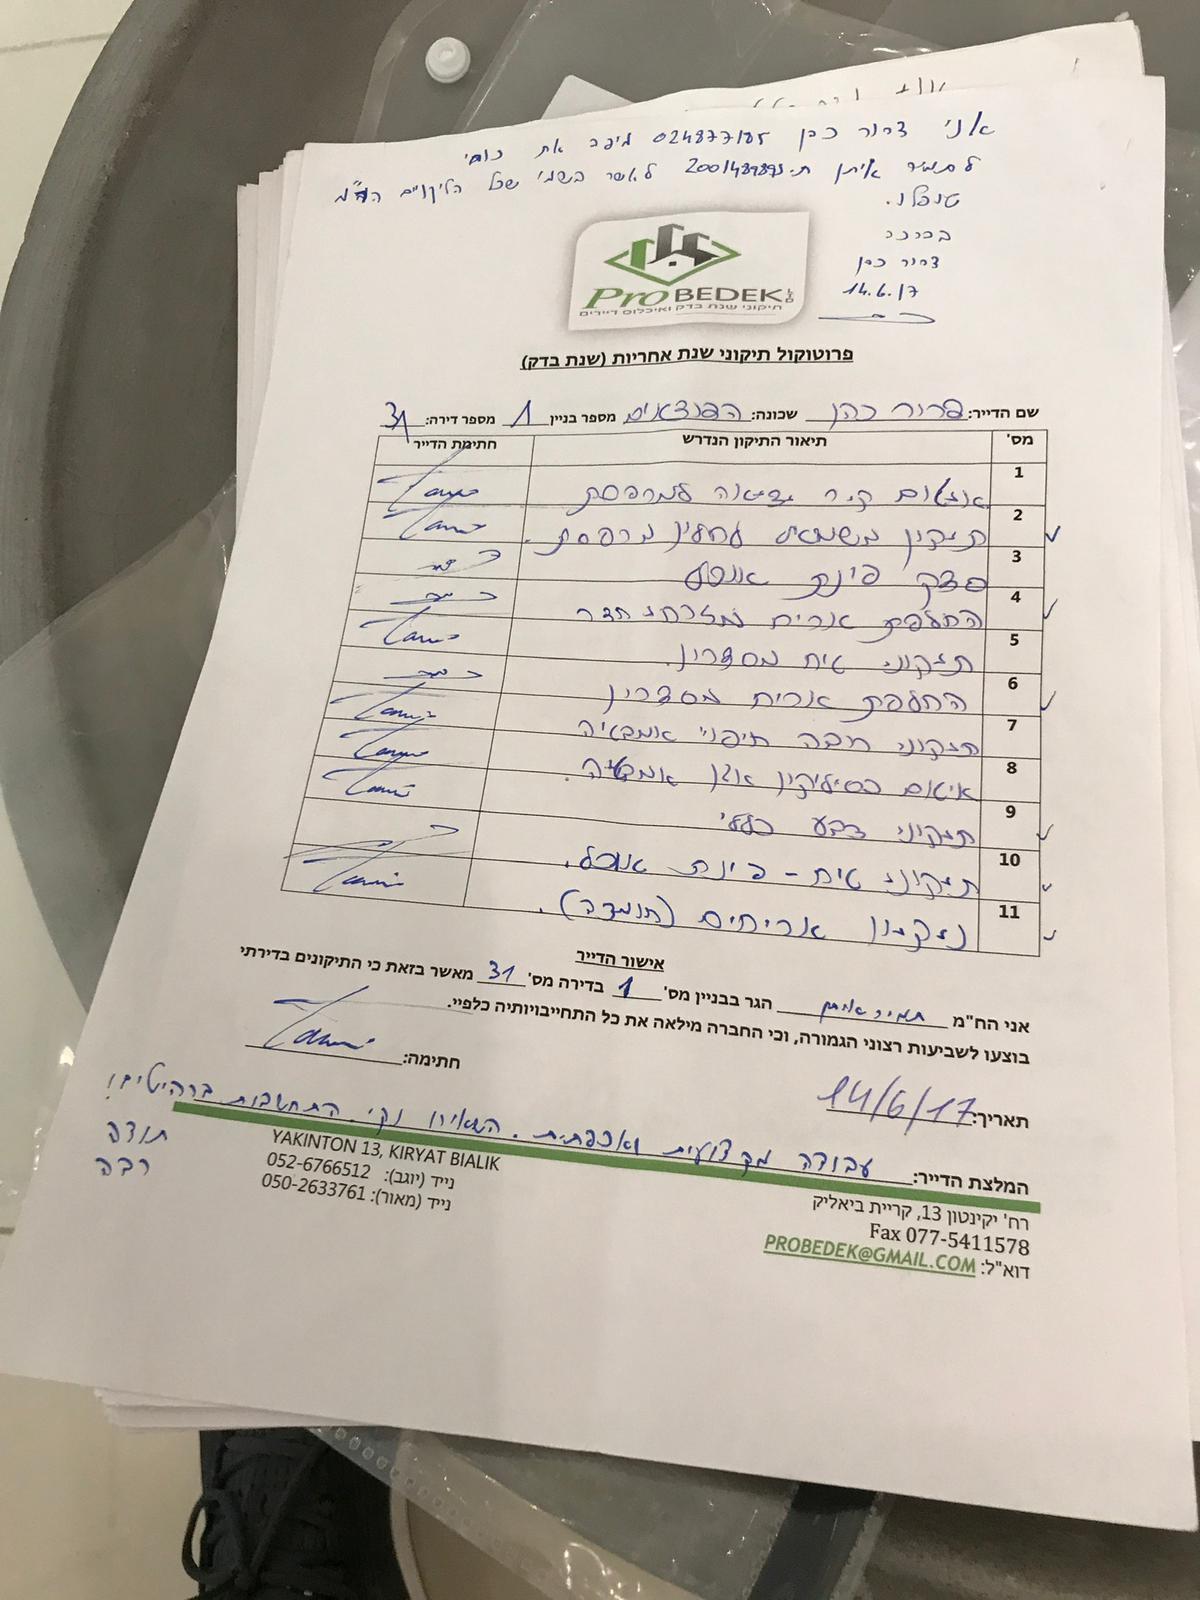 אני דרור כהן 024877185 מיפה את כוחי
לתמיר איתן ת. לאשר בשמי שכל הליקויים הנ"מ
טופלו.
בברכה
דרור כהן
14.6.17
Pro BEDEK LTD
תיקוני שנת בדק ואיכלוס דיירים
פרוטוקול תיקוני שנת אחריות (שנת בדק)
שם הדייר: דרור כהן שכונה: מספר בניין 1 מספר דירה: 31
מס' תיאור התיקון הנדרש חתימת הדייר
1 קיר יציאה למרפסת
2 תיקון לחלון מרפסת.
3 סדק פינת אוכל
4 החלפת אריח חדר
5 תיקוני טיח מסדרון.
6 החלפת אריח מסדרון
7 תיקוני רובה חיפוי אמבטיה
8 איטום בסיליקון אגן אמבטיה.
9 תיקוני צבע כללי
10 תיקוני טיח - פינת אוכל.
11 ניקיון אריחים (חומצה).
אישור הדייר
אני הח"מ תמיר איתן הגר בבניין מס' 1 בדירה מס' 31 מאשר בזאת כי התיקונים בדירתי
בוצעו לשביעות רצוני הגמורה, וכי החברה מילאה את כל התחייבויותיה כלפיי.
חתימה:
תאריך: 14/6/17
המלצת הדייר: עבודה מקצועית ואיכותית. השאירו נקי. התחשבות ברהיטים!
תודה
רבה
רח' יקינטון 13, קריית ביאליק
Fax 077-5411578
דוא"ל: PROBEDEK@GMAIL.COM
YAKINTON 13, KIRYAT BIALIK
נייד (יוגב): 052-6766512
נייד (מאור): 050-2633761